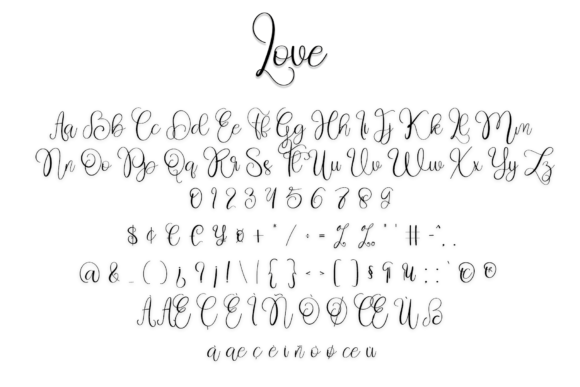 Love
Aa Bb Cc Dd Ee Ff Gg Hh Ii Jj Kk Ll Mm
Nn Oo Pp Qq Rr Ss Tt Uu Vv Ww Xx Yy Zz
0 1 2 3 4 5 6 7 8 9
$ ¢ € £ ¥ + * / ÷ = # - ^ . .
@ & _ ( ) ¡ ? ¿ ! \ | { } < > [ ] § ¶ µ : : ` © ®
À Æ Ç È Ì Ñ Ò Ø Œ Ù ß
à æ ç è ì ñ ò ø œ ù